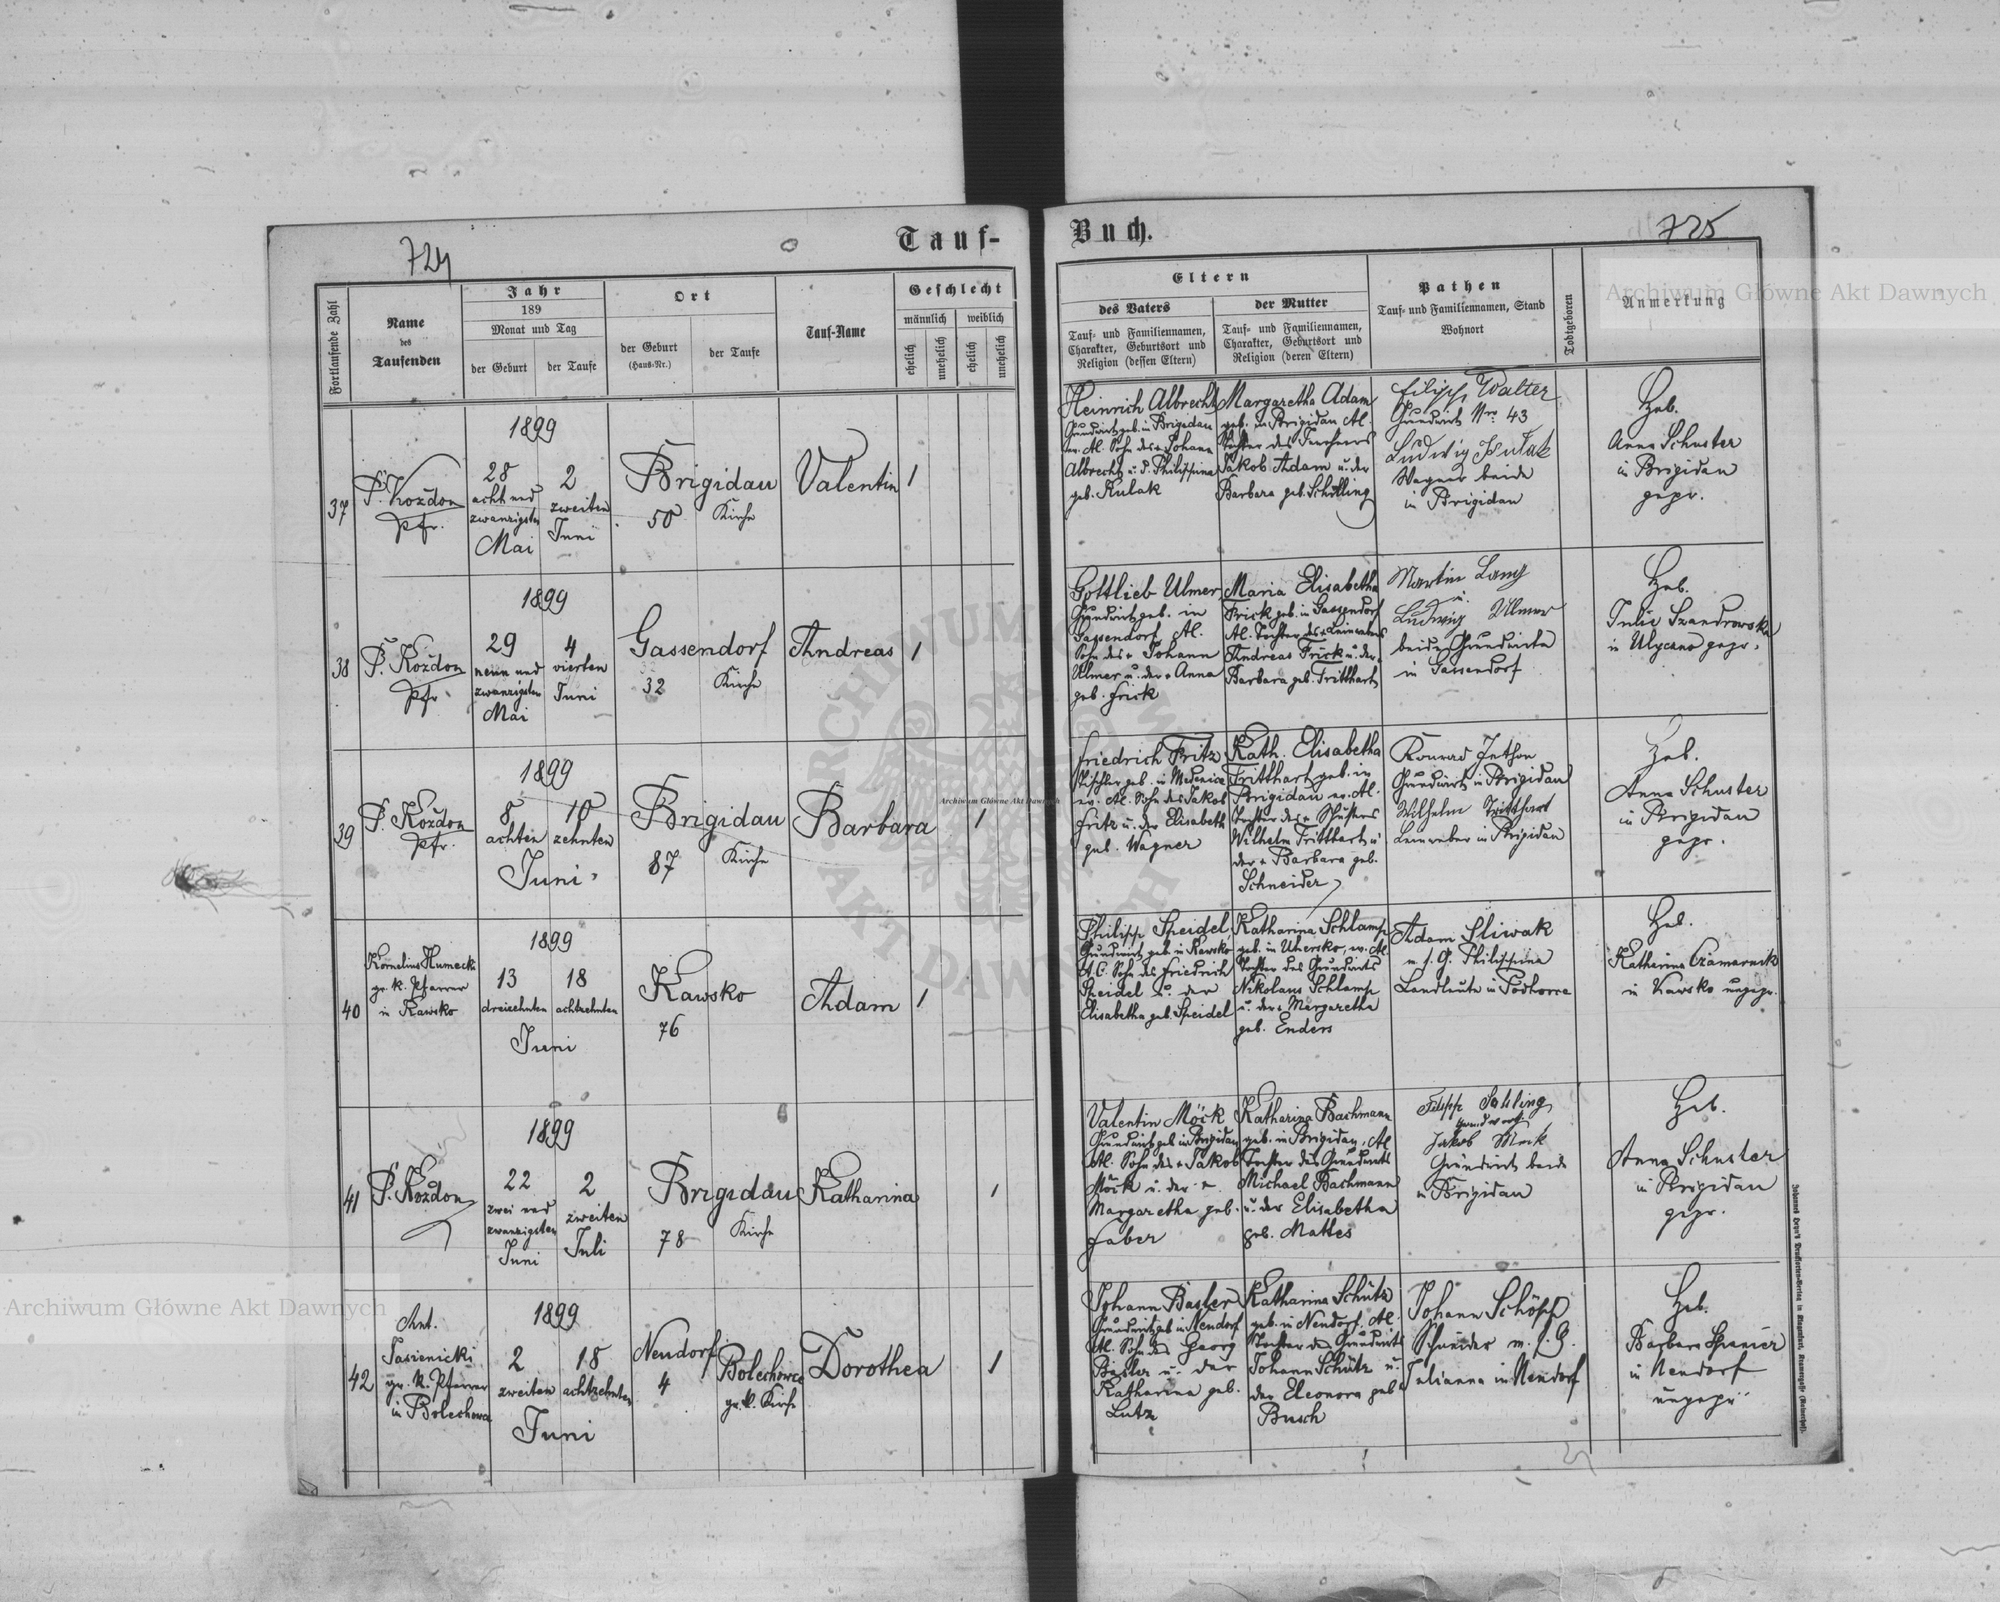 724
Tauf-
Fortlaufende Zahl
Name
des
Taufenden
Jahr
189
Monat und Tag
der Geburt
der Taufe
Ort
der Geburt
(Haus-Nr.)
der Taufe
Tauf-Name
Geschlecht
männlich
weiblich
ehelich
unehelich
ehelich
unehelich
37
P. Kożdon
Pfr.
1899
28
acht und
zwanzigsten
Mai
2
zweiten
Juni
Brigidau
50
Kirche
Valentin
1
38
P. Kożdon
Pfr.
1899
29
neun und
zwanzigsten
Mai
4
vierten
Juni
Gassendorf
32
Kirche
Andreas
1
39
P. Kożdon
Pfr.
1899
8
achten
10
zehnten
Juni
Brigidau
87
Kirche
Barbara
1
40
Kornelius Humecki
gr. k. Pfarrer
in Kawsko
1899
13
dreizehnten
18
achtzehnten
Juni
Kawsko
76
Adam
1
41
P. Kożdon
1899
22
zwei und
zwanzigsten
Juni
2
zweiten
Juli
Brigidau
78
Kirche
Katharina
1
42
Ant.
Pasienicki
gr. k. Pfarrer
in Bolechowce
1899
2
zweiten
18
achtzehnten
Juni
Neudorf
4
Bolechowce
gr. k. Kirche
Dorothea
1
Buch.
725
Eltern
des Vaters
Tauf- und Familiennamen,
Charakter, Geburtsort und
Religion (dessen Eltern)
der Mutter
Tauf- und Familiennamen,
Charakter, Geburtsort und
Religion (deren Eltern)
Pathen
Tauf- und Familiennamen, Stand
Wohnort
Todtgeboren
Anmerkung
Heinrich Albrecht
Grundwirt geb. in Brigidau
ev. Al. Sohn des + Johann
Albrecht u. d. Philippina
geb. Kulak
Margaretha Adam
geb. in Brigidau Al.
Tochter des
Jakob Adam u. der
Barbara geb. Schilling
Filipp Walter
Grundwirt Nro 43
Ludwig Kulak
Wagner beide
in Brigidau
Heb.
Anna Schuster
in Brigidau
gepr.
Gottlieb Ulmer
Grundwirt geb. in
Gassendorf Al.
Sohn des + Johann
Ulmer u. der + Anna
geb. Frick
Maria Elisabetha
Frick geb. in Gassendorf
Al. Tochter des + Leinwebers
Andreas Frick u. der
Barbara geb. Tritthart
Martin Lang
u.
Ludwig Ulmer
beide Grundwirte
in Gassendorf
Heb.
Julie Szandrowska
in Uliczno gepr.
Friedrich Fritz
Tischler geb. in Medenice
ev. Al. Sohn des Jakob
Fritz u. der Elisabeth
geb. Wagner
Kath. Elisabetha
Tritthart geb. in
Brigidau ev. Al.
Tochter des + Schusters
Wilhelm Tritthart u.
der + Barbara geb.
Schneider
Konrad Jethon
Grundwirt in Brigidau
Wilhelm Tritthart
Leinweber in Brigidau
Heb.
Anna Schuster
in Brigidau
gepr.
Philipp Speidel
Grundwirt geb. in Kawsko
A.C. Sohn des Friedrich
Speidel u. der
Elisabetha geb. Speidel
Katharina Schlamp
geb. in Uhersko, ev. Al.
Tochter des Grundwirts
Nikolaus Schlamp
u. der + Margaretha
geb. Enders
Adam Sliwak
m. s. G. Philippina
Landleute in Podhorce
Heb.
Katharina Czamarnik
in Kawsko ungepr.
Valentin Möck
Grundwirt geb. in Brigidau
Al. Sohn des + Jakob
Möck u. der +
Margaretha geb.
Faber
Katharina Bachmann
geb. in Brigidau, Al.
Tochter des Grundwirts
Michael Bachmann
u. der Elisabetha
geb. Mattes
Filipp Sahling
Jakob Mök
Grundwirt beide
in Brigidau
Heb.
Anna Schuster
in Brigidau
gepr.
Johann Basler
Grundwirt geb. in Neudorf
Al. Sohn des Georg
Basler u. der
Katharina geb.
Lutz
Katharina Schütz
geb. in Neudorf, Al.
Tochter des Grundwirts
Johann Schütz u.
der Eleonora geb.
Busch
Johann Schöpp
Schneider m. s. G.
Julianna in Neudorf
Heb.
Barbara Spanier
in Neudorf
ungepr.
Archiwum Główne Akt Dawnych
Archiwum Główne Akt Dawnych
Archiwum Główne Akt Dawnych
ARCHIWUM GŁÓWNE
AKT DAWNYCH